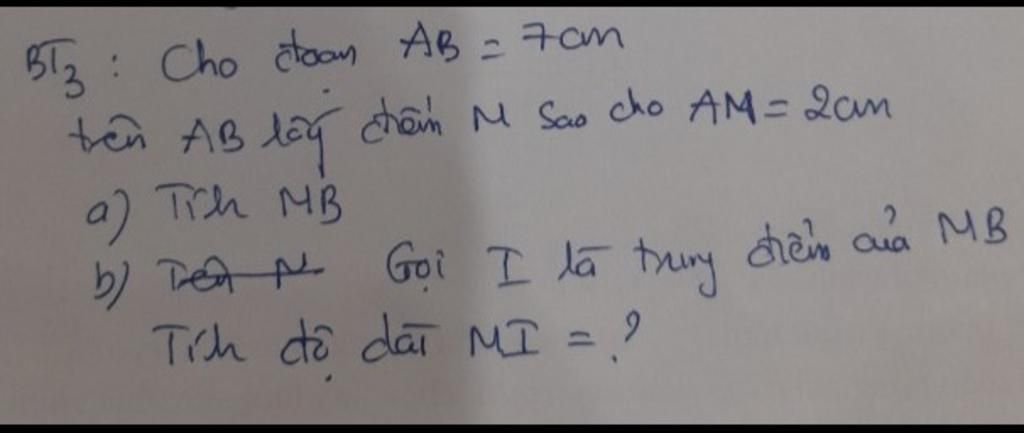 BT3: Cho đoạn AB = 7cm
trên AB lấy điểm M sao cho AM = 2cm
a) Tính MB
b) Gọi I là trung điểm của MB
Tính độ dài MI = ?